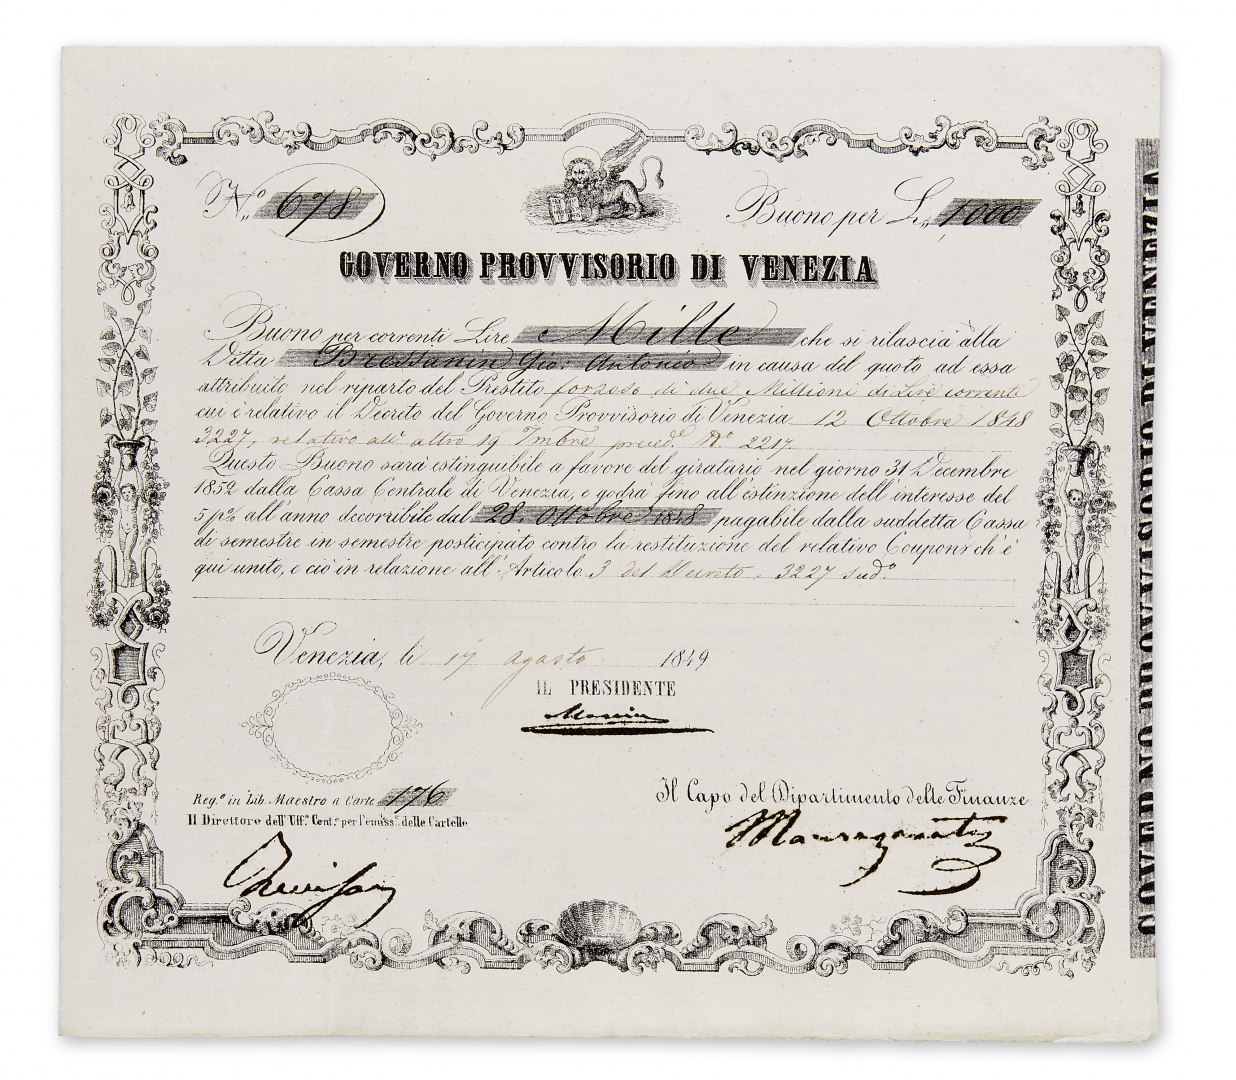 N.º 678
Buono per L. 1000
GOVERNO PROVVISORIO DI VENEZIA
Buono per correnti Lire Mille che si rilascia alla
Ditta Bressanin Gio: Antonio in causa del quoto ad essa
attribuito nel riparto del Prestito forzoso di due Millioni di Lire correnti
cui è relativo il Decreto del Governo Provvisorio di Venezia 12 Ottobre 1848
3227, relativo all' altro 19 7mbre preced.e N.o 2217.
Questo Buono sarà estinguibile a favore del giratario nel giorno 31 Decembre
1852 dalla Cassa Centrale di Venezia, e godrà fino all'estinzione dell'interesse del
5 p% all'anno decorribile dal 28 Ottobre 1848 pagabile dalla suddetta Cassa
di semestre in semestre posticipato contro la restituzione del relativo Coupons ch'è
qui unito, e ciò in relazione all'Articolo 3 del Decreto 3227 sud.o
Venezia, li 17 agosto 1849
IL PRESIDENTE
Manin
Reg.o in Lib. Maestro a Carte 176
Il Direttore dell'Uff.o Cent.e per l'emiss.e delle Cartelle
Il Capo del Dipartimento delle Finanze
Maurogonato
GOVERNO PROVVISORIO DI VENEZIA